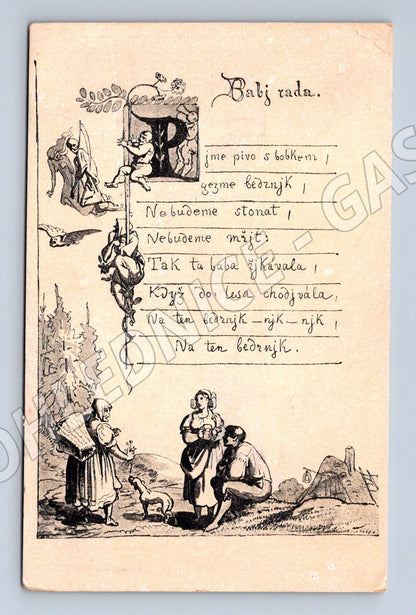 Babj rada.
Pjme pivo s bobkem,
gezme bedrnjk,
Nebudeme stonat,
Nebudeme mřjt:
Tak ta bába řjkávala,
Když do lesa chodjvála,
Na ten bedrnjk – njk – njk,
Na ten bedrnjk.
POHLEDNICE - GAS